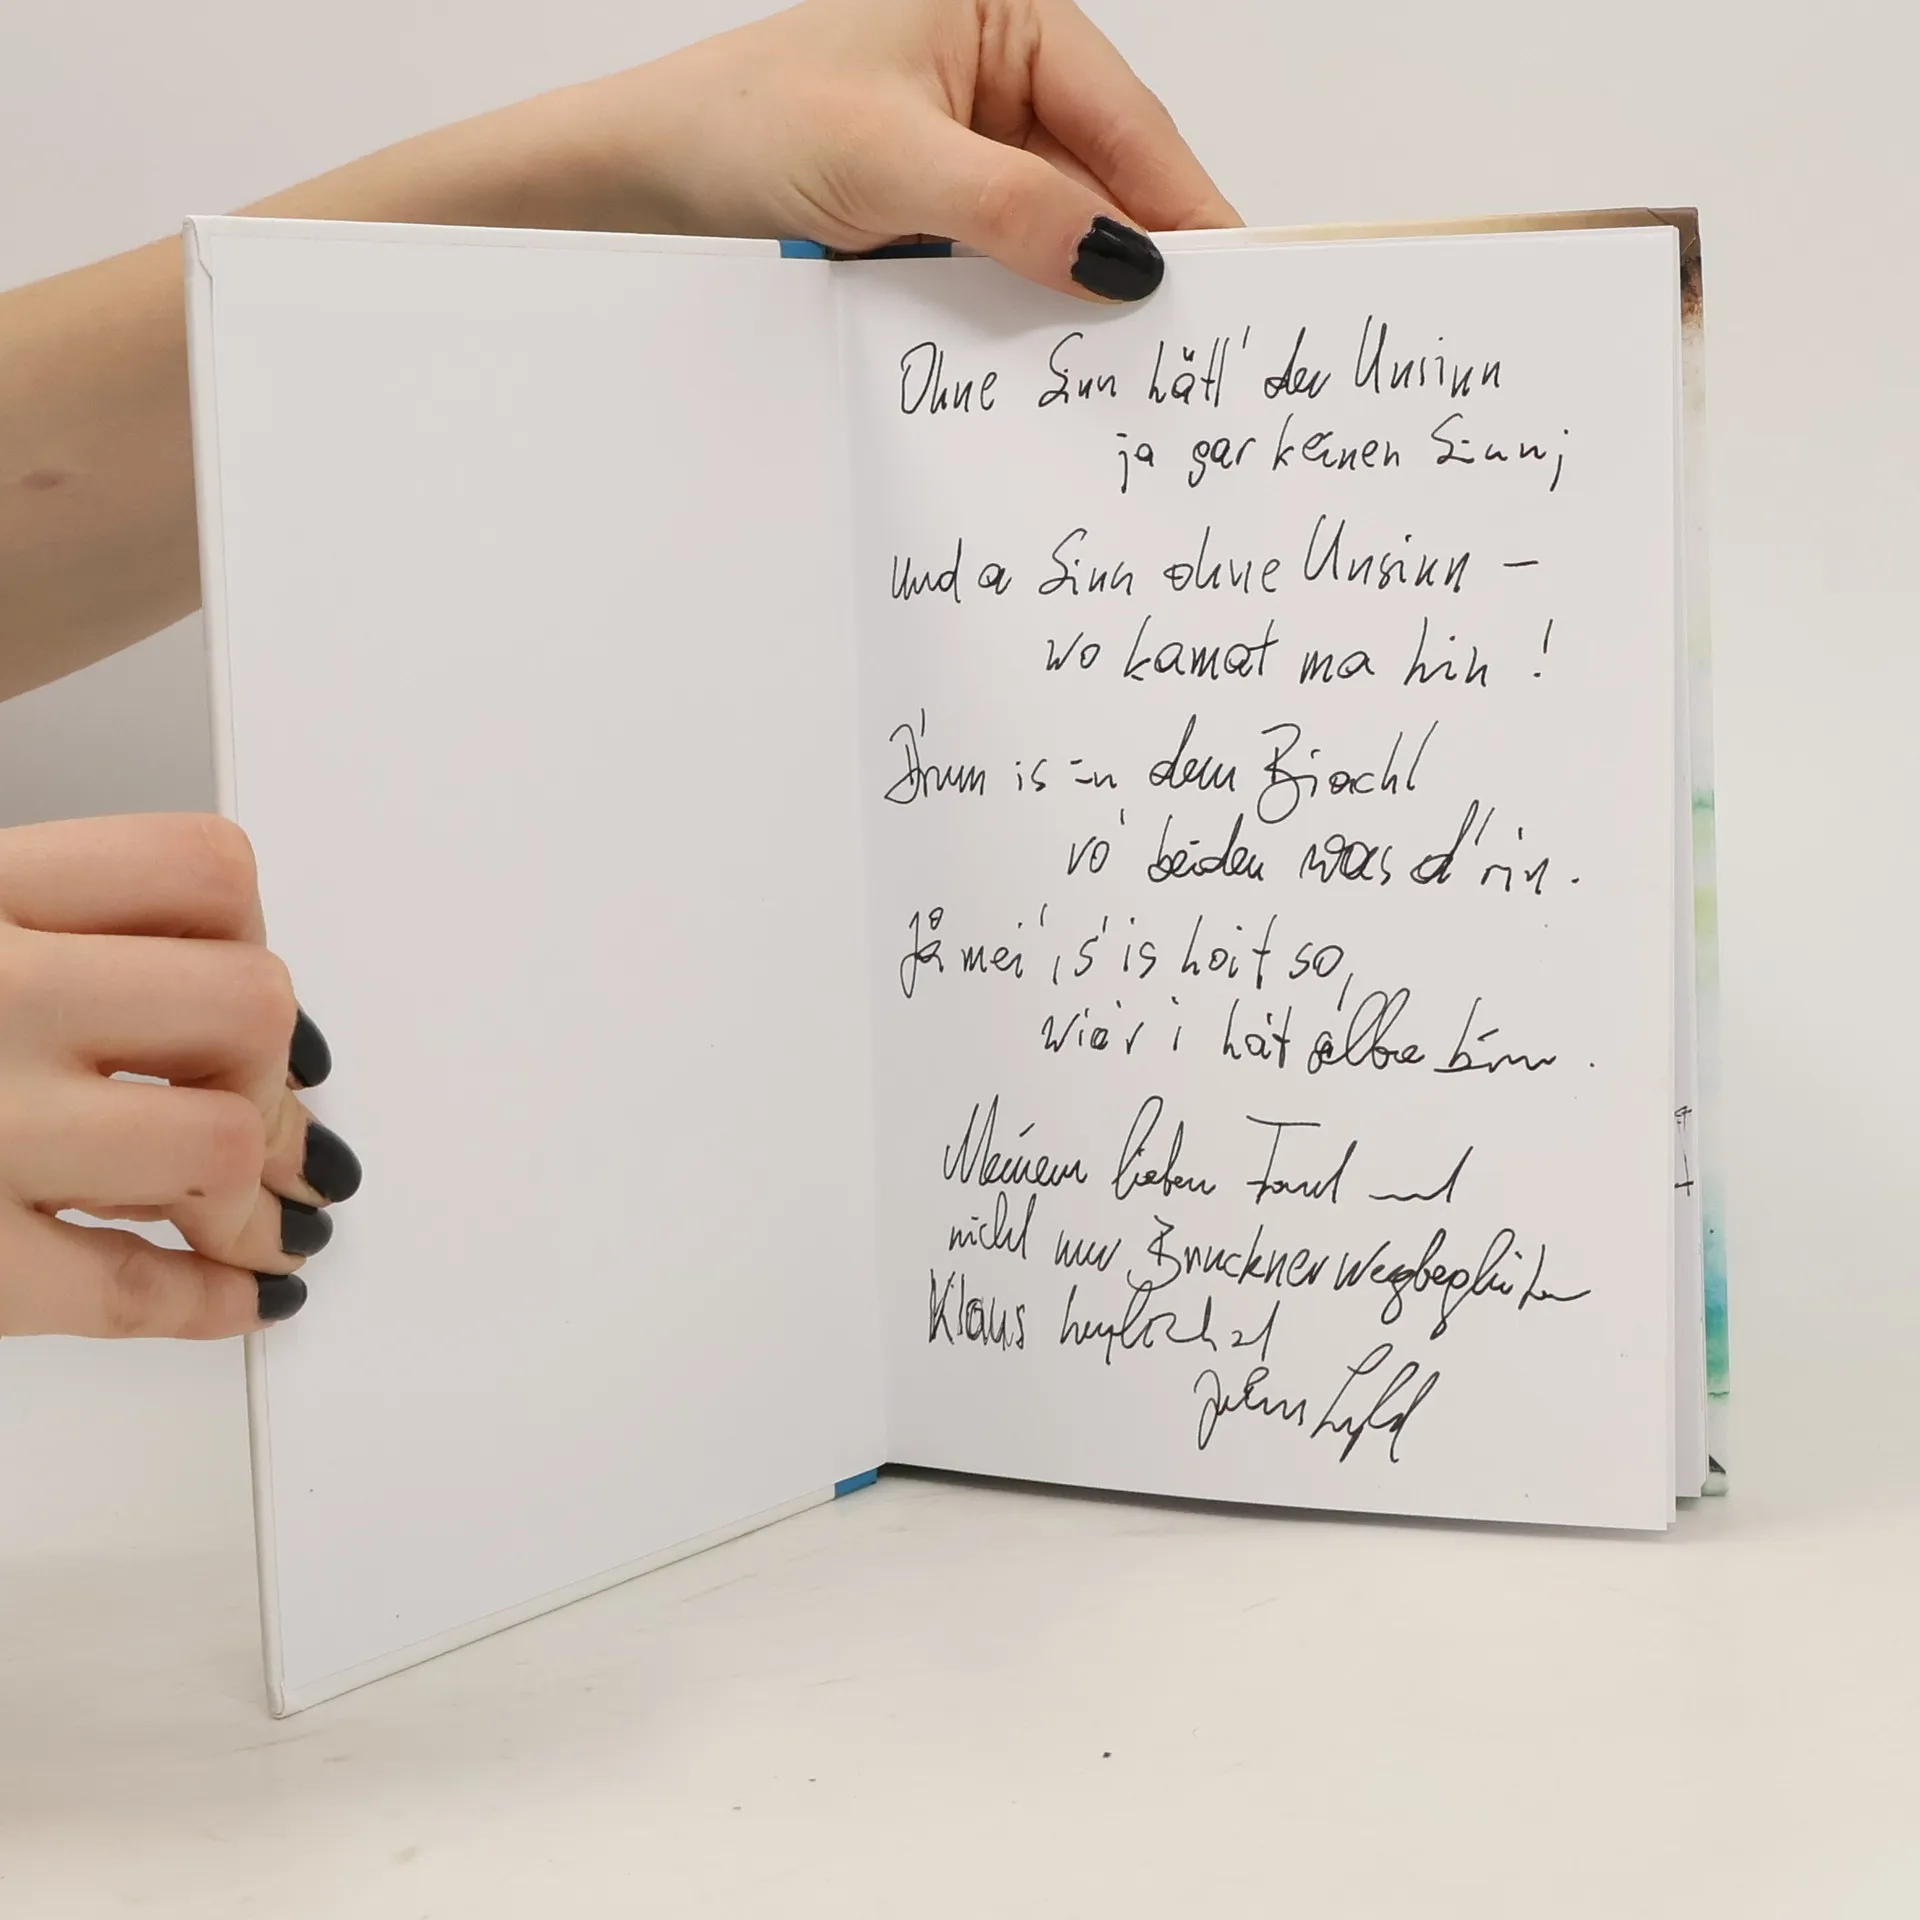 Ohne Sinn hätt' der Unsinn
ja gar keinen Sinn;
und a Sinn ohne Unsinn –
wo kamat ma hin!
D'rum is in dem Biachl
vo' beiden was d'rin.
Jå mei', s'is hoit so,
wia'r i håt sälba bin.
Meinem lieben Freund und
nicht nur Bruckner Wegbegleiter
Klaus herzlichst